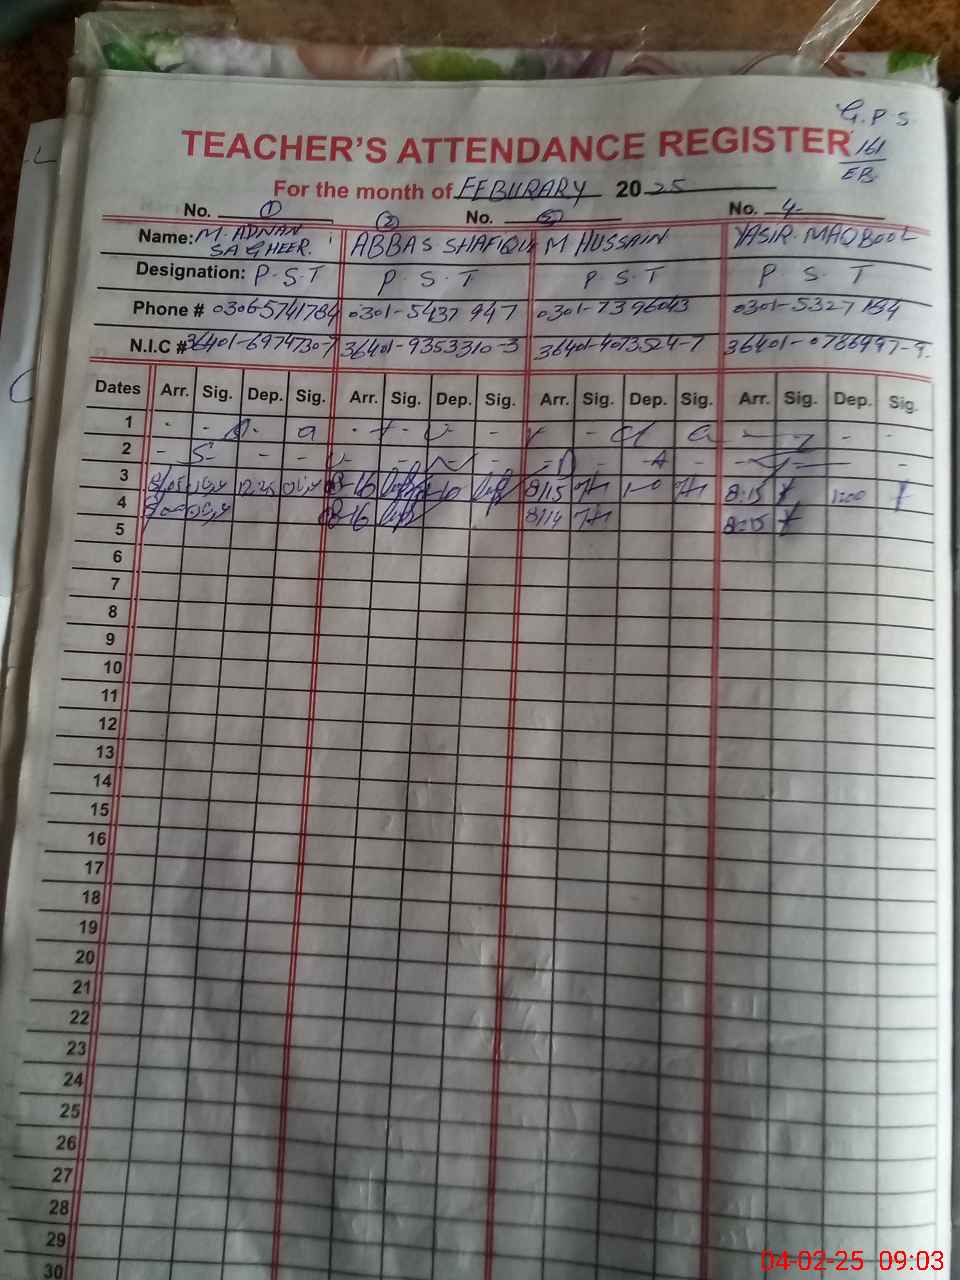 G.P.S
161
EB.
TEACHER'S ATTENDANCE REGISTER
For the month of FEBURARY 2025
No. 1 2 No. No. 4
Name: M. ADNAN SAGHEER. ABBAS SHAFIQUE M HUSSAIN YASIR MAQBOOL
Designation: P.S.T P.S.T P S T P S. T
Phone # 0306-5741784 0301-5437947 0301-7396043 0301-5327184
N.I.C # 36401-6974730-7 36401-9353310-3 36401-4073524-7 36401-0786997-9.
Dates Arr. Sig. Dep. Sig. Arr. Sig. Dep. Sig. Arr. Sig. Dep. Sig. Arr. Sig. Dep. Sig.
1
2 S
3 12.25 8-16 8/15 1-0 8:15 1200
4 8-16 8/14 8:15
5
6
7
8
9
10
11
12
13
14
15
16
17
18
19
20
21
22
23
24
25
26
27
28
29
30
04-02-25 09:03